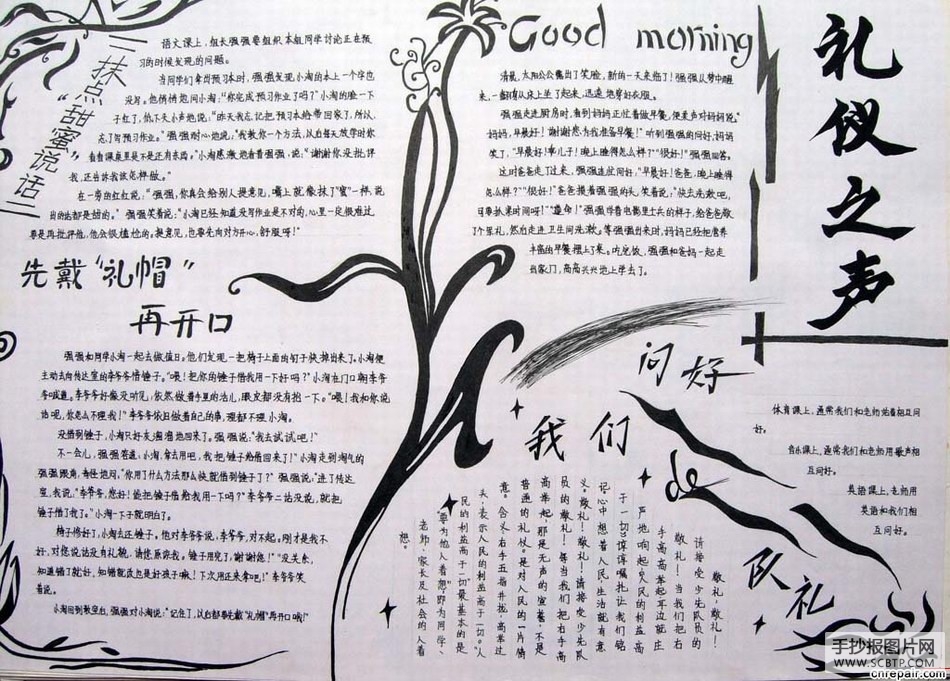 礼仪之声
"抹点甜蜜"说话
语文课上，组长强强要组织本组同学讨论正在预
习的时候发现的问题。
当同学们拿出预习本时，强强发现小海的本上一个字也
没写。他悄悄地问小海："你完成预习作业了吗？"小海的脸一下
子红了，他不大声地说："昨天我忘记把预习本给带回家了，所以，
忘了写预习作业。"强强耐心地说："我教你一个方法，以后每天放学时你
看看课桌里是不是还有东西。"小海感激地看着强强，说："谢谢你没批评
我，还告诉我该怎样做。"
在一旁的红红说："强强，你真会给别人提意见，嘴上就像抹了蜜一样，说
出的话都是甜的。"强强笑着说："小海已经知道没写作业是不对的，心里一定很难过，
要是再批评他，他会很尴尬的。提意见，也要先向对方开心，舒服呀！"
先戴"礼帽"
再开口
强强和同学小海一起去做值日。他们发现一把椅子上面的钉子快掉出来了。小海便
主动去向传达室的李爷爷借锤子。"喂！把你的锤子借我用一下好吗？"小海在门口朝李爷
爷喊道。李爷爷好像没听见，依然做着手里的活儿，眼皮都没有抬一下。"喂！我和你说
话呢，你怎么不理我！"李爷爷依旧做着自己的事，理都不理小海。
没借到锤子，小海只好灰溜溜地回来了。强强说："我去试试吧！"
不一会儿，强强
强强跟前，
室，我说，'李爷爷，您好！能把锤子借给我用一下吗？'李爷爷二话没说，就把
锤子借了我。"小海一下子就明白了。
椅子修好了，小海去还锤子。他对李爷爷说："李爷爷，对不起，刚才是我不
好，对您说话没有礼貌，请您原谅我。锤子用完了，谢谢您！""没关系，
知道错了就好，知错就改也是好孩子嘛！下次用还来拿吧！"李爷爷笑
着说。
小海回到教室后，强强对小海说："记住了，以后都要先戴"礼帽"再开口哦！"
Good morning
清晨，太阳公公露出了笑脸，新的一天来临了！强强从梦中醒
来，一翻身从床上坐了起来，迅速地穿好衣服。
强强走进厨房时，看到妈妈正忙着做早餐，便柔声对妈妈说：
"妈妈，早晨好！谢谢您为我准备早餐！"听到强强的问好，妈妈
笑了，"早晨好！乖儿子！晚上睡得怎么样？""很好！"强强回答。
这时爸爸走了过来，强强连忙问好："早晨好！爸爸，晚上睡得
怎么样？""很好！"爸爸摸着强强的头，笑着说："快去洗漱吧，
可要抓紧时间呀！""遵命！"强强学着电影里士兵的样子，给爸爸敬
了个军礼，然后走进卫生间洗漱。等强强出来时，妈妈已经把营养
丰富的早餐摆上了桌。吃完饭，强强和爸妈一起走
出家门，高高兴兴地上学去了。
问好
体育课上，通常我们和老师站着相互问
好。
音乐课上，通常我们和老师用歌声相
互问好。
英语课上，老师用
英语和我们相
互问好。
我们
de
队礼
敬礼！敬礼！
请接受少先队员的
敬礼！当我们把右
手高高举起耳边就庄
严地响起"人民的利益高
于一切"谆谆嘱托让我们铭
记心中想着人民生活就有意
义。敬礼！敬礼！请接受少先队
员的敬礼！每当我们把右手高
高举起那是无声的宣誓：不是
普通的礼仗。是对人民的一片情
意。含义：右手五指并拢高举过
头，表示人民的利益高于一切。"人
民的利益高于一切"最基本的是
要为他人着想，即为同学、
老师、家长及社会的人着
想。
手抄报图片网
WWW.SCBTP.COM
cnrepair.com